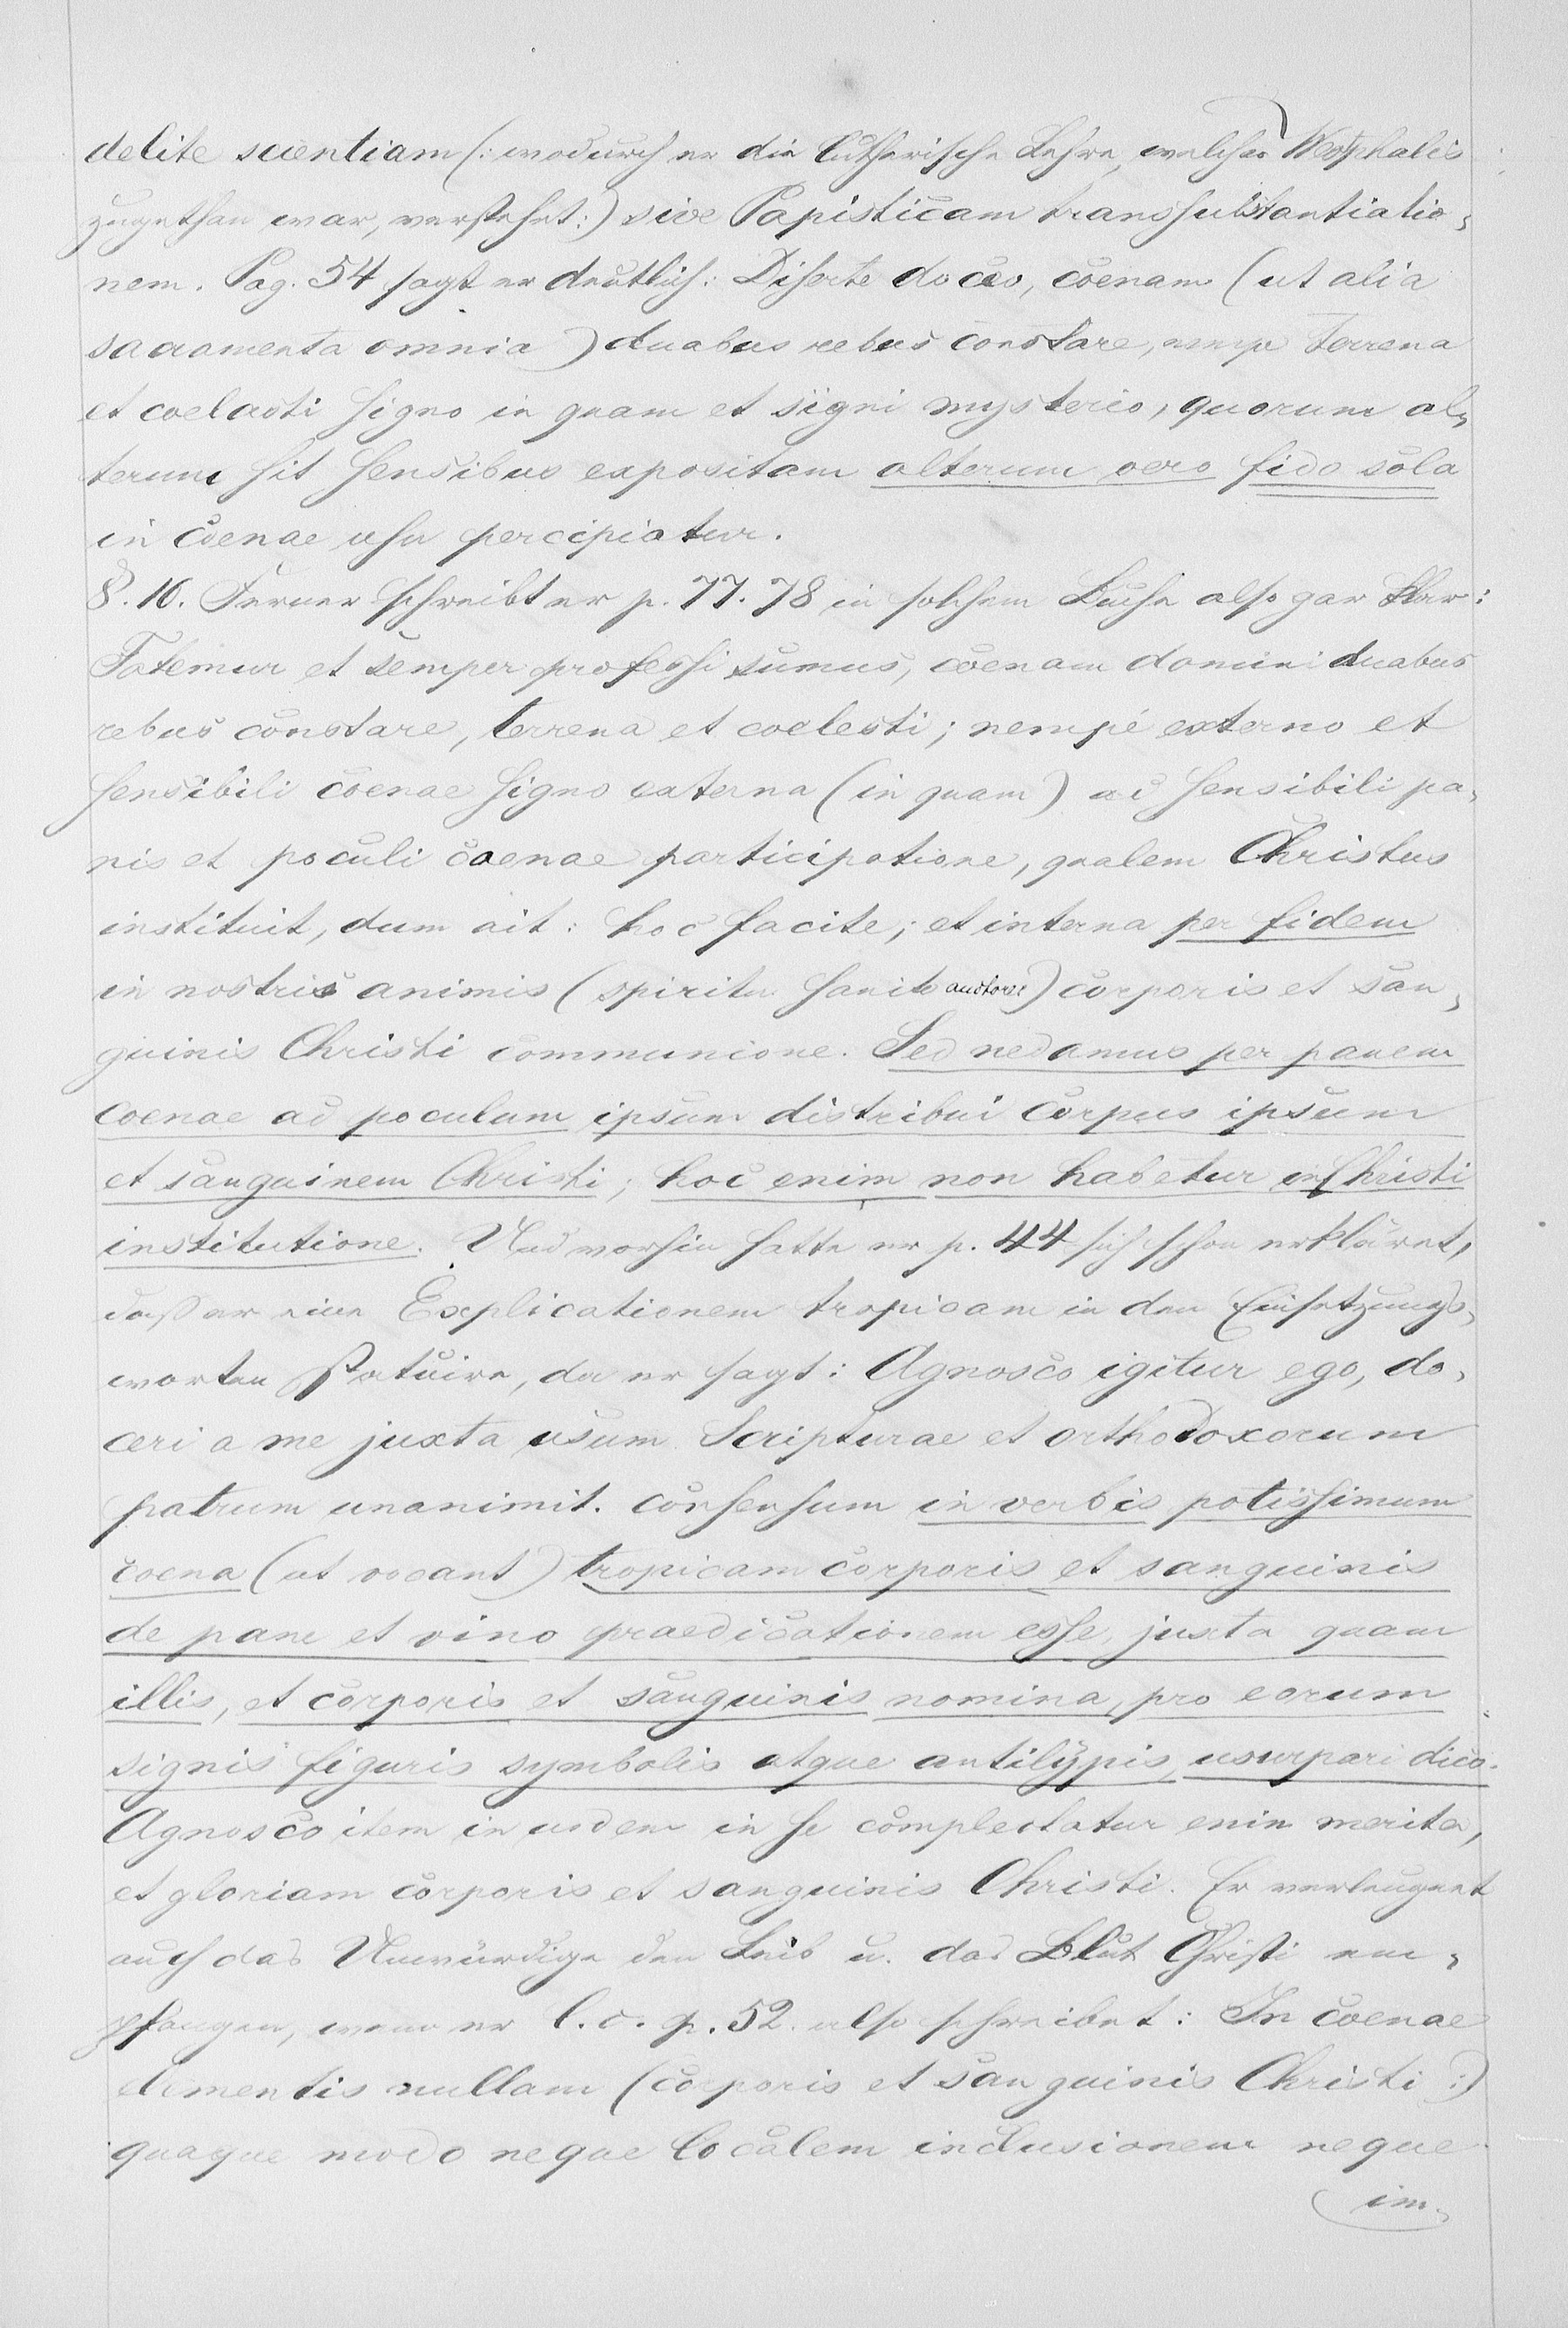 delite scientiam (: wodurch er die lutherische Lehre, welcher Westphalis
zugethan war, verstehet :) sive Papisticam transsubstantiatio-
nem. Pag. 54 sagt er deutlich: Diserte doceo, coenam (ut alia
sacramenta omnia) duabus rebus constare, nempe terrena
et coelesti signo in quam et signi mysterio, quorum al-
terum sit sensibus expositam alterum vero fide sola
in coenae usu percipiatur.
§. 16. Ferner schreibt er p. 77. 78 in solchem Buche also gar klar:
Fatemur et semper professi sumus, coenam domini duabus
rebus constare, terrena et coelesti; nempe externo et
sensibili coenae signo externa (in quam) ac sensibili pa-
nis et poculi coenae participatione, qualem Christus
instituit, dum ait: hoc facite; et interna per fidem
in nostris animis (spiritu sancto auctore) corporis et san-
guinis Christi communione. Sed nedamus per panem
coenae ac poculum ipsum distribui corpus ipsum
et sanguinem Christi; hoc enim non habetur in Christi
institutione. Und vorhin hatte er p. 44 sich schon erkläret,
daß er eine Explicationem tropicam in den Einsetzungs-
worten statuire, da er sagt: Agnosco igitur ego, do-
ceri a me juxta usum Scripturae et orthodoxorum
patrum unanimit. consensum in verbis potissimum
coena (ut vocant) tropicam corporis et sanguinis
de pane et vino praedicationem esse, juxta quam
illis, et corporis et sanguinis nomina, pro eorum
signis figuris symbolis atque antitypis, usurpari dico.
Agnosco item in eodem in se complectatur enim merita,
et gloriam corporis et sanguinis Christi. Er verleugnet
auch das Unwürdige den Leib u. das Blut Christi em-
pfangen, wenn er l. c. p. 52. also schreibet: In coenae
elementis nullam (corporis et sanguinis Christi :)
quaque modo neque localem inclusionem neque
im-